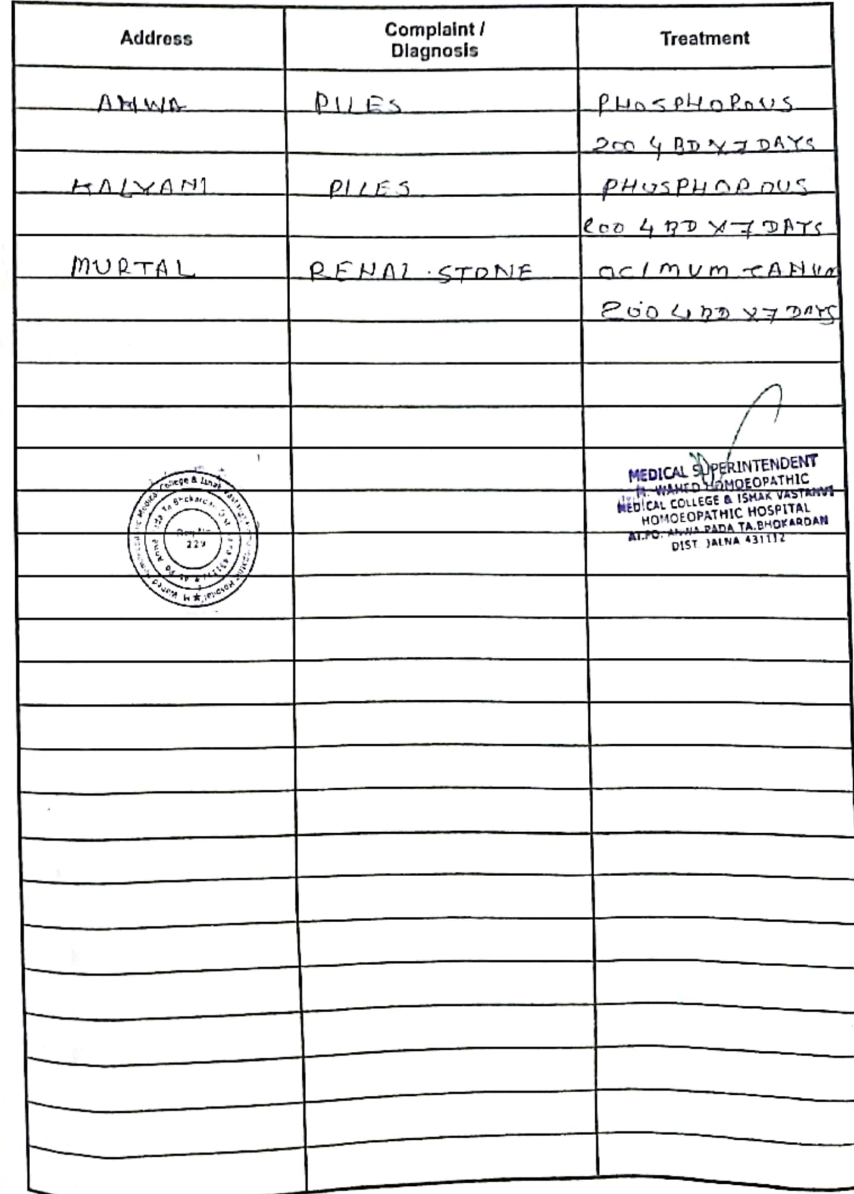 Address Complaint / Diagnosis Treatment
ANWA PILES PHOSPHOROUS
200 4 BD X 7 DAYS
KALYANI PILES PHOSPHOROUS
200 4 BD X 7 DAYS
MURTAL RENAL STONE OCIMUM CANUM
200 4 BD X 7 DAYS
MEDICAL SUPERINTENDENT
M. WAHED HOMOEOPATHIC
MEDICAL COLLEGE & ISHAK VASTANVI
HOMOEOPATHIC HOSPITAL
AT.PO. ANWA PADA TA.BHOKARDAN
DIST JALNA 431112
Medical College & Ishak Vastanvi Hospital M. Wahed
Ta Bhokardan
229